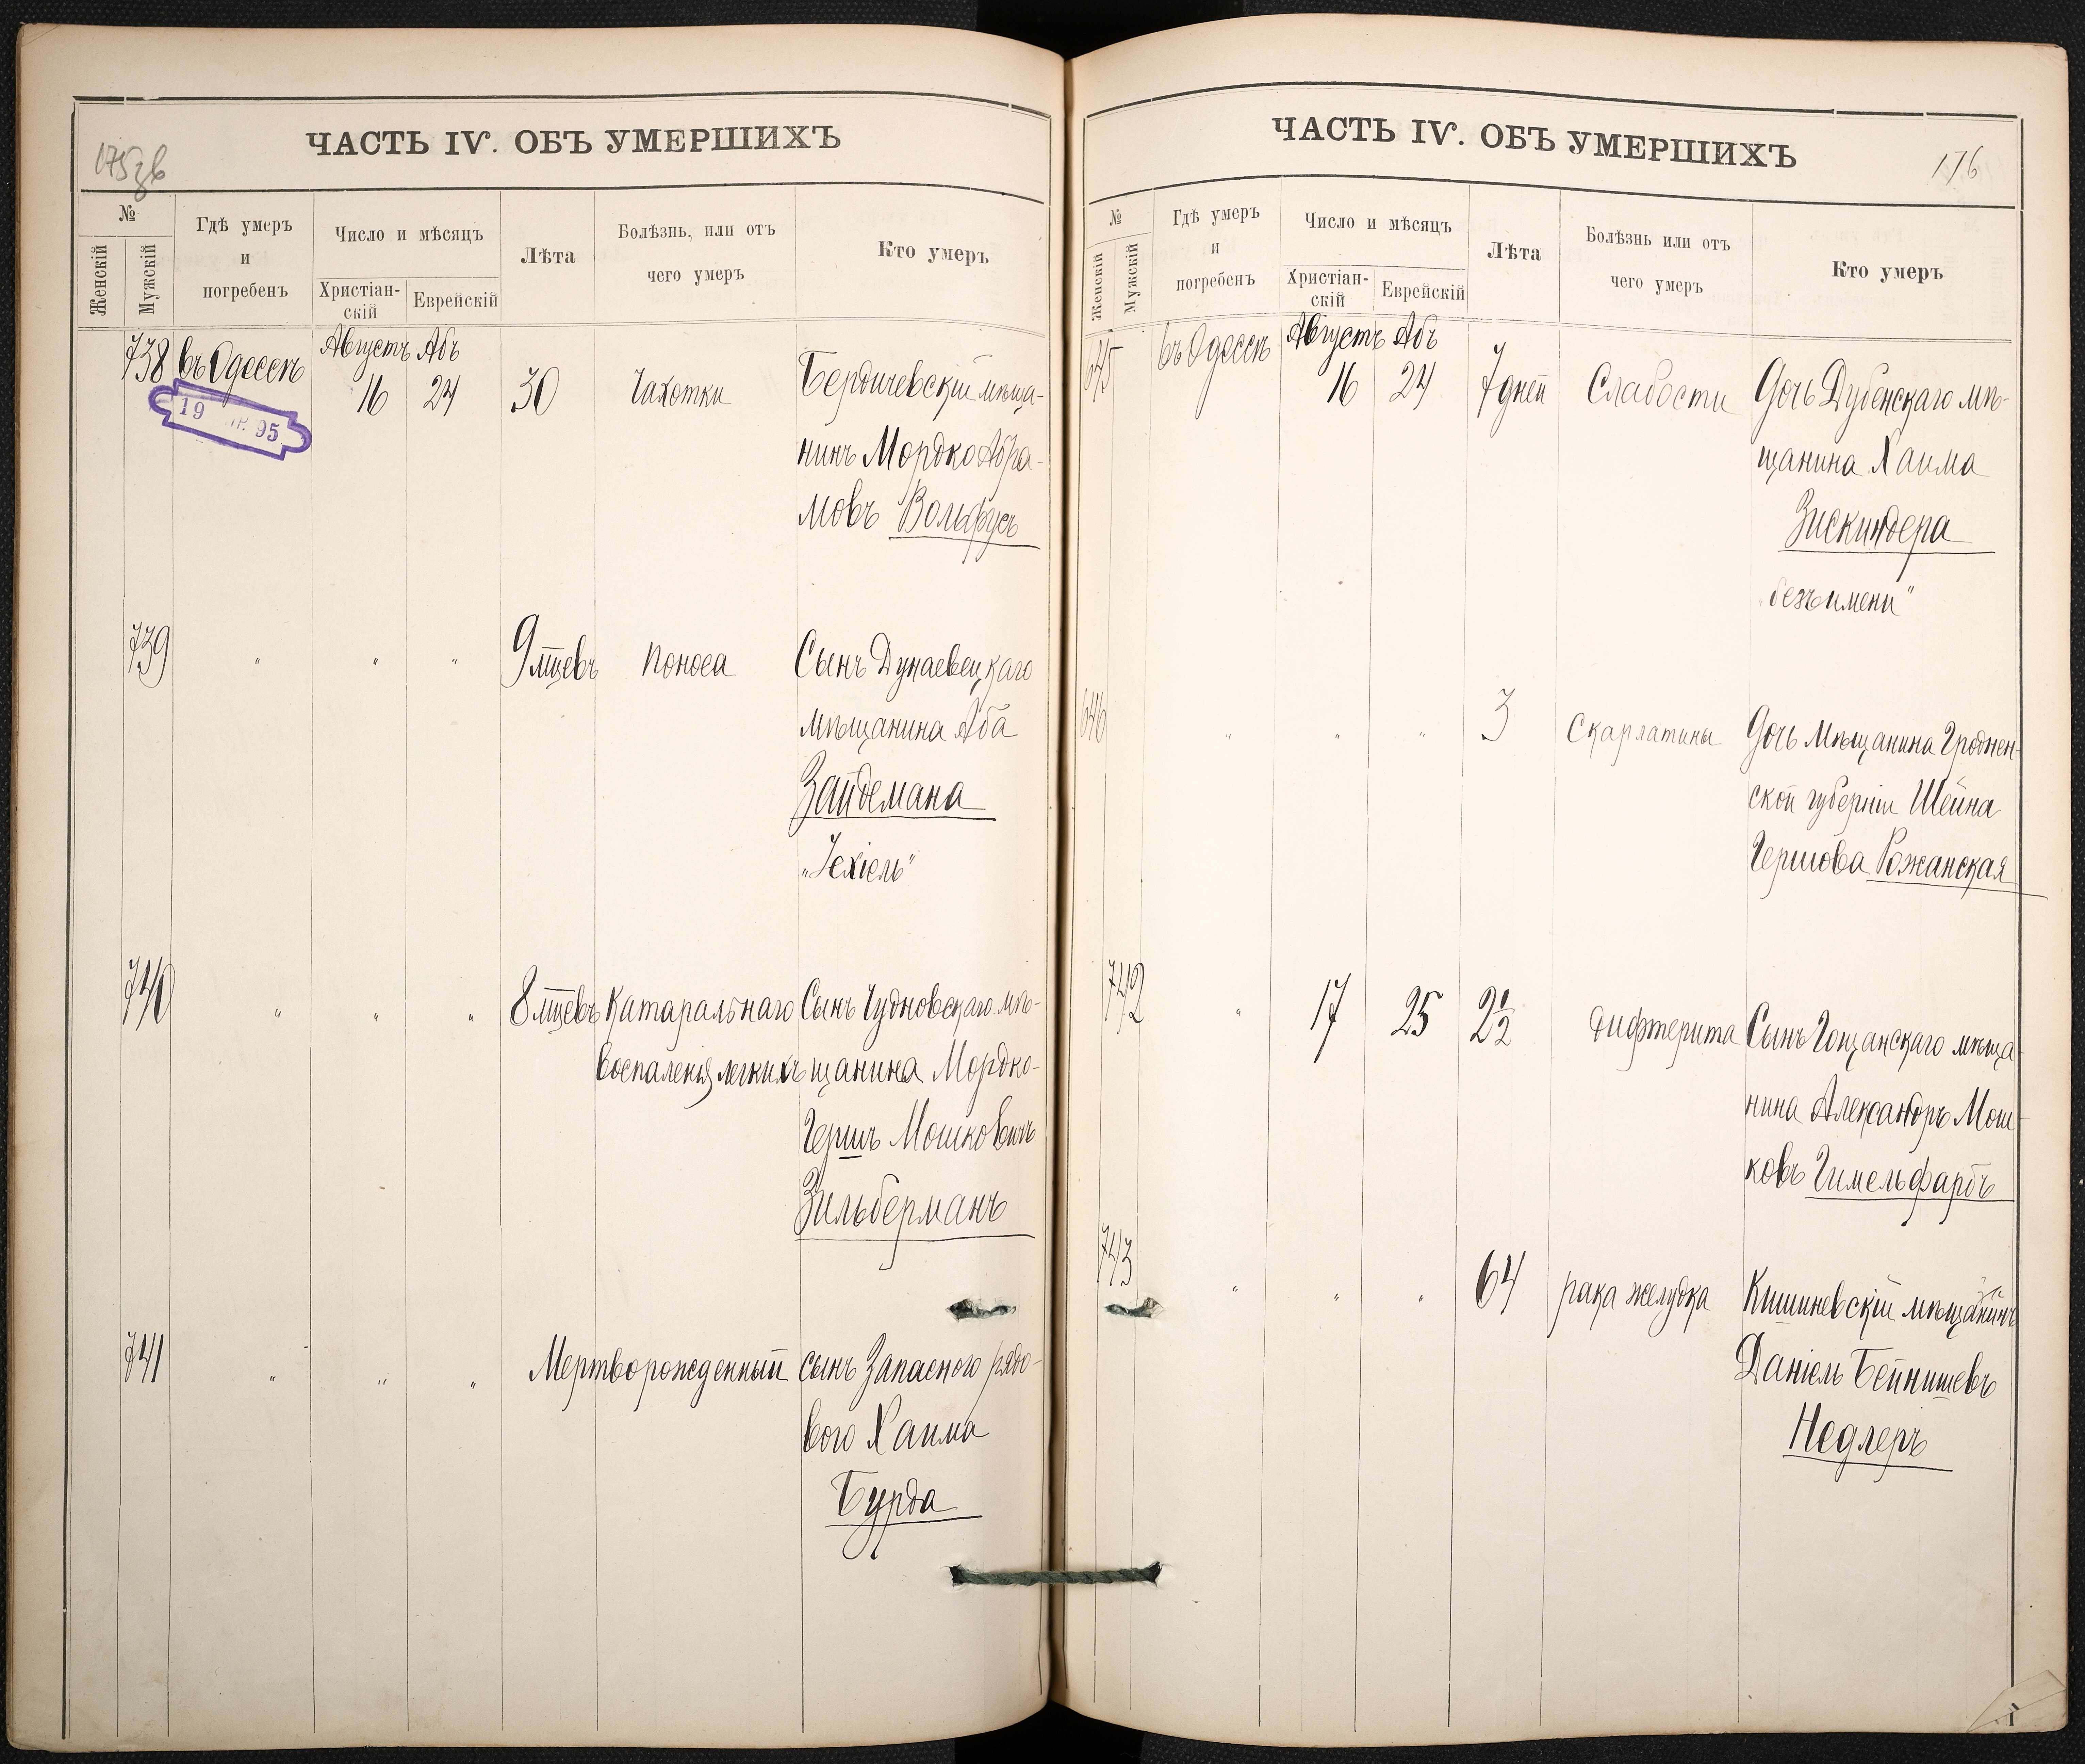 175 зв
ЧАСТЬ IV. ОБЪ УМЕРШИХЪ
№
Женскій
Мужскій
Гдѣ умеръ
и
погребенъ
Число и мѣсяцъ
Христіан-
скій
Еврейскій
Лѣта
Болѣзнь, или отъ
чего умеръ
Кто умеръ
738 въ Одессѣ Августъ Абъ
16 24 30 Чахотки Бердичевскій мѣща-
19 95
нинъ Мордко Абра-
мовъ Вольфусъ
739 " " " 9 м͞цевъ поноса Сынъ Дунаевецкаго
мѣщанина Аба
Зайдемана
„Іехіель"
740 " " " 8 м͞цевъ Катаральнаго Сынъ Чудновскаго мѣ-
воспаленія легкихъ щанина Мордко-
Гершъ Мошковичъ
Зильберманъ
741 " " " Мертворожденный сынъ Запасного рядо-
вого Хаима
Бурда
ЧАСТЬ IV. ОБЪ УМЕРШИХЪ
176
№
Женскій
Мужскій
Гдѣ умеръ
и
погребенъ
Число и мѣсяцъ
Христіан-
скій
Еврейскій
Лѣта
Болѣзнь или отъ
чего умеръ
Кто умеръ
645 въ Одессѣ Августъ Абъ
16 24 7 дней Слабости Дочь Дубенскаго мѣ-
щанина Хаима
Зискиндера
„безъ имени"
646 " " " 3 Скарлатины Дочь Мѣщанина Гроднен-
ской губерніи Шейна
Гершова Рожанская
742 " 17 25 2½ Дифтерита Сынъ Гощанскаго мѣща-
нина Александръ Мош-
ковъ Гимельфарбъ
743 " " " 64 рака желудка Кишиневскій мѣщанинъ
Даніель Бейнишевъ
Недлеръ